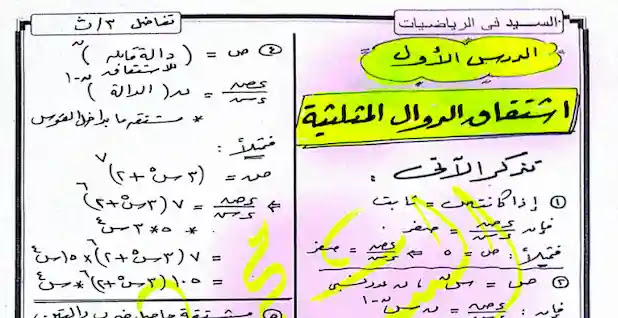 السيد فى الرياضيات
تفاضل ٣/ث
الدرس الأول
اشتقاق الدوال المثلثية
تذكر الآتى :
① إذا كانت ص = ثابت
فإن ءص/ءس = صفر
فمثلاً : ص = ٥ ⇐ ءص/ءس = صفر
② ص = س^ن ، ن عدد نسبى
فإن : ءص/ءس = ن س^ن-١
④ ص = (دالة قابلة للاشتقاق)^ن
ءص/ءس = ن (الدالة)^ن-١
* مشتقة ما بداخل القوس
فمثلاً :
ص = (٣س^٥ + ٢)^٧
⇐ ءص/ءس = ٧ (٣س^٥ + ٢)^٦
* ٥ * ٣ س^٤
= ٧ (٣س^٥ + ٢)^٦ × ١٥س^٤
= ١٠٥ (٣س^٥ + ٢)^٦ * س^٤
⑤ مشتقة حاصل ضرب دالتين